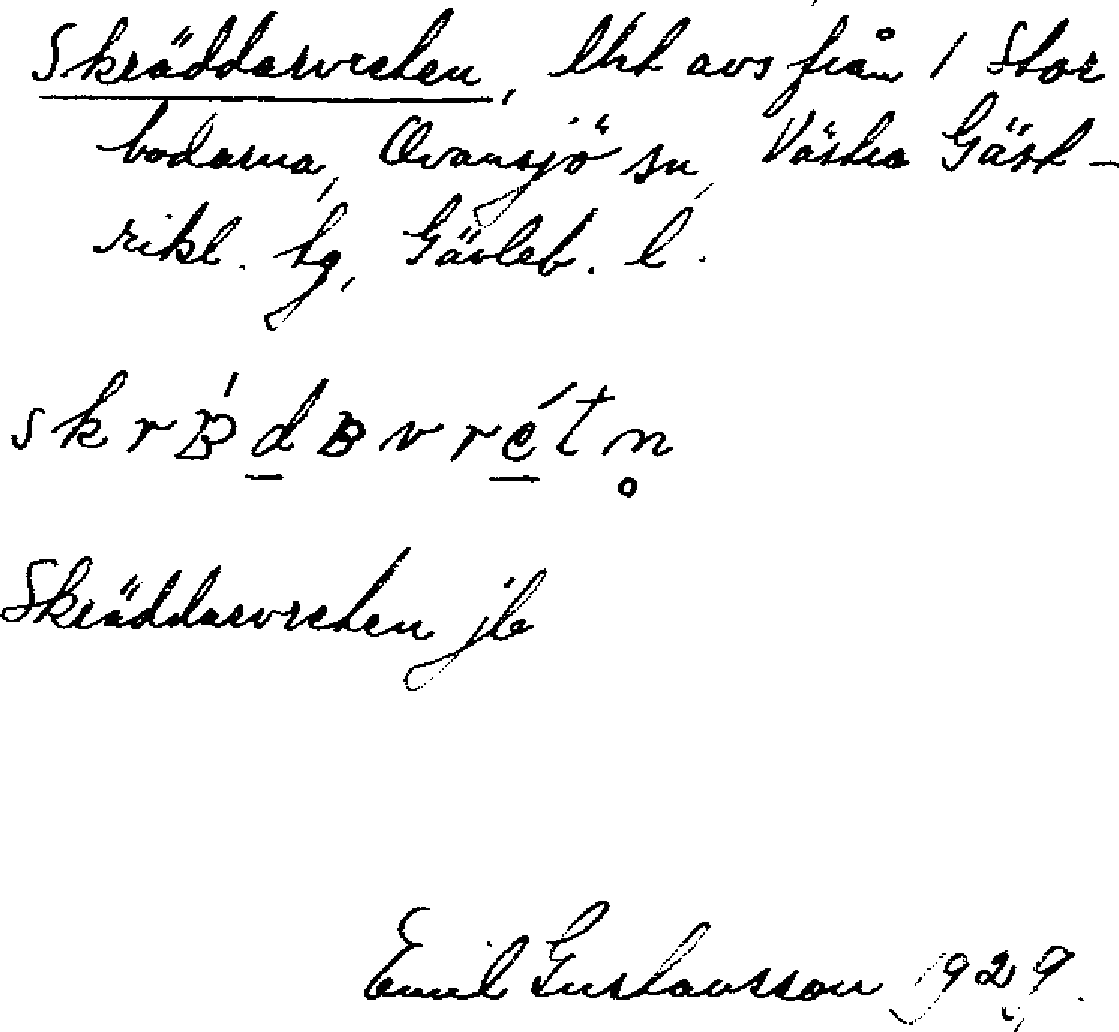 Skräddarvreten, lht avs från 1 Stor
bodarna, Ovansjö sn, Västra Gäst-
rikl. hg, Gävleb. l.
Skräddarvreten jb
Emil Gustavsson 1929.